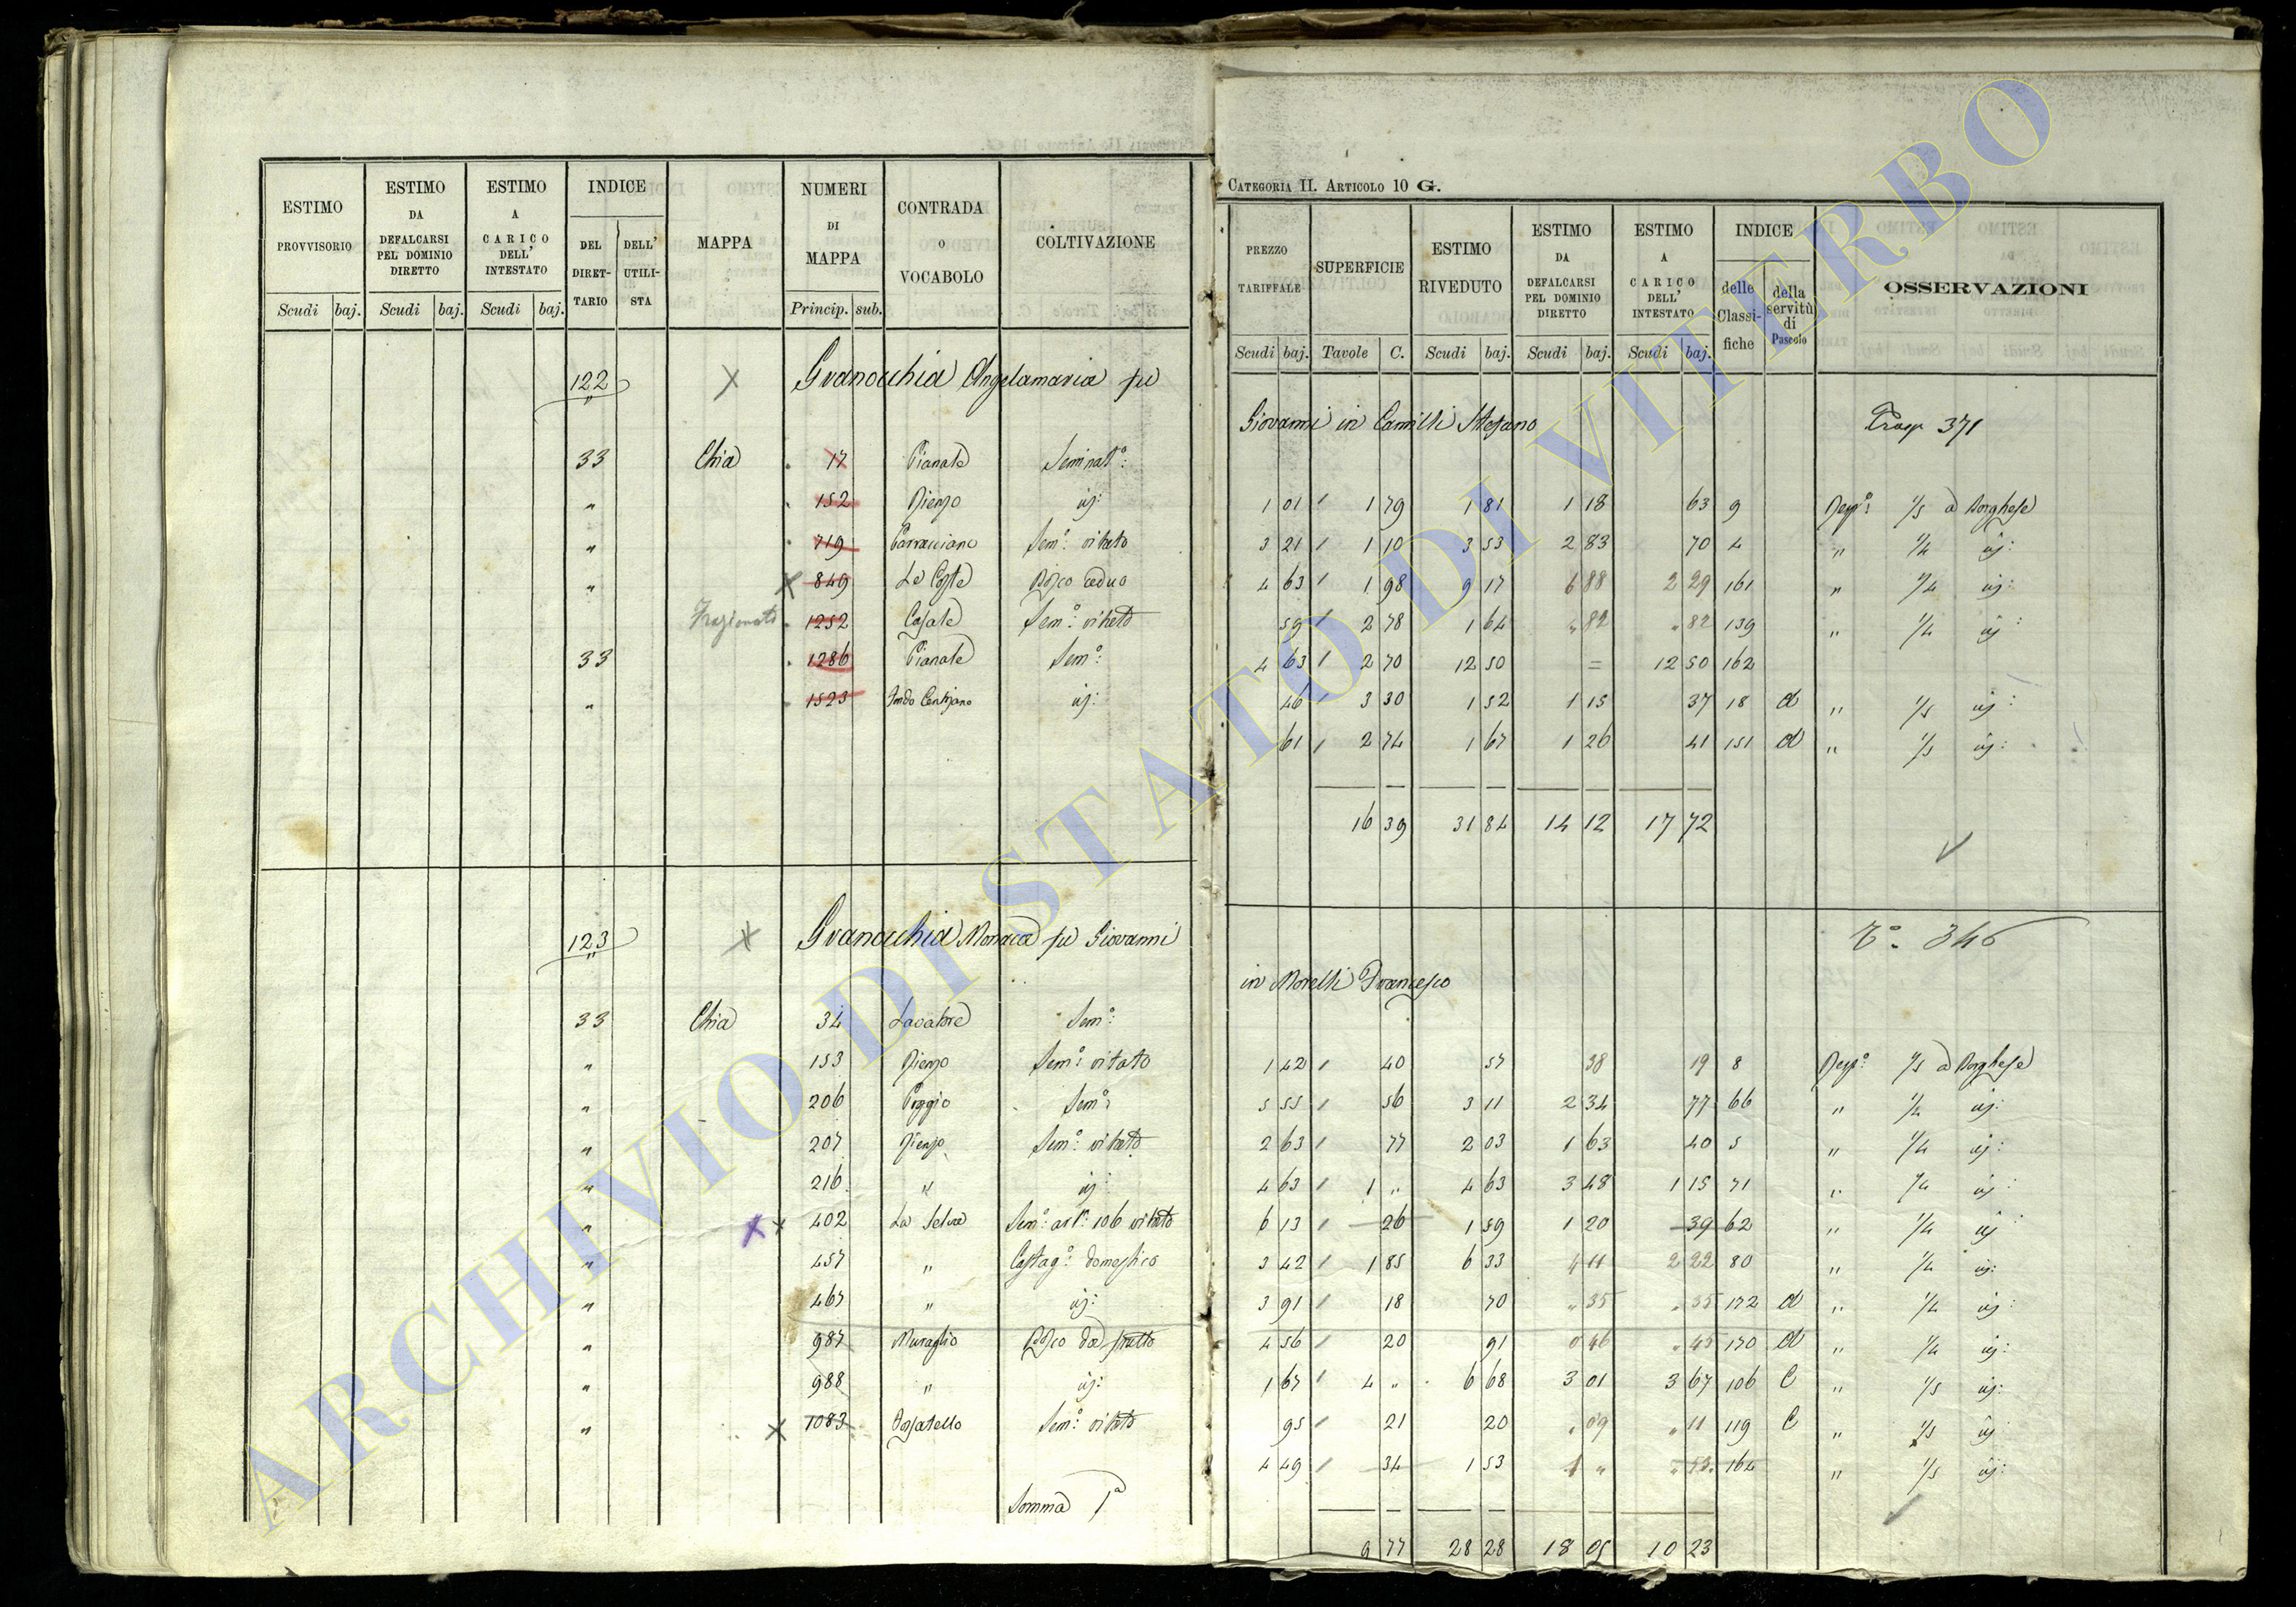 ESTIMO PROVVISORIO
Scudi baj.
ESTIMO DA DEFALCARSI PEL DOMINIO DIRETTO
Scudi baj.
ESTIMO A CARICO DELL' INTESTATO
Scudi baj.
INDICE
DEL DIRET-TARIO
DELL' UTILI-STA
MAPPA
NUMERI DI MAPPA
Princip. sub.
CONTRADA O VOCABOLO
COLTIVAZIONE
122 Granocchia Angelamaria fu
33 Chia 17 Pianale Seminato:
" 152 Rienzo id:
" 719 Sem: vitato
" 849 Le Coste Bosco ceduo
" Frazionato 1252 Casale Sem: vitato
33 1286 Pianale Sem:
" 1523 id:
123 Granocchia Monaca fu Giovanni
33 Chia 34 Sem:
" 153 Rienzo Sem: vitato
" 206 Poggio Sem:
" 207 Rienzo Sem: vitato
" 216 " id:
" 402 La Selva Sem: art: 106 vitato
" 457 " Castag: domestico
" 467 " id:
" 987 Muraglio Bosco da frutto
" 988 " id:
" 1083 Sem: vitato
Somma 1a
CATEGORIA II. ARTICOLO 10 G.
PREZZO TARIFFALE
Scudi baj.
SUPERFICIE
Tavole C.
ESTIMO RIVEDUTO
Scudi baj.
ESTIMO DA DEFALCARSI PEL DOMINIO DIRETTO
Scudi baj.
ESTIMO A CARICO DELL' INTESTATO
Scudi baj.
INDICE
delle Classi-fiche
della servitù di Pascolo
OSSERVAZIONI
Giovanni in Camilli Stefano 371
1 01 1 79 1 81 1 18 63 9 1/5 a Borghese
3 21 1 10 3 53 2 83 70 4 " 1/4 id:
4 63 1 98 9 17 6 88 2 29 161 " 1/4 id:
59 2 78 1 64 " 82 " 82 139 " 1/4 id:
4 63 2 70 12 50 = 12 50 162
46 3 30 1 52 1 15 37 18 d " 1/5 id:
61 2 74 1 67 1 26 41 151 d " 1/5 id:
16 39 31 84 14 12 17 72
346
in Morelli Francesco
1 42 40 57 38 19 8 1/5 a Borghese
5 55 56 3 11 2 34 77 66 " 1/4 id:
2 63 77 2 03 1 63 40 5 " 1/4 id:
4 63 1 " 4 63 3 48 1 15 71 " 1/4 id:
6 13 26 1 59 1 20 39 62 " 1/4 id:
3 42 1 85 6 33 4 11 2 22 80 " 1/4 id:
3 91 18 70 " 35 " 35 172 d " 1/4 id:
4 56 20 91 0 46 " 45 170 d " 1/4 id:
1 67 4 " 6 68 3 01 3 67 106 C " 1/5 id:
95 21 20 " 09 " 11 119 C " 1/5 id:
4 49 34 1 53 1 " " 53 164 " 1/5 id:
9 77 28 28 18 05 10 23
ARCHIVIO DI STATO DI VITERBO